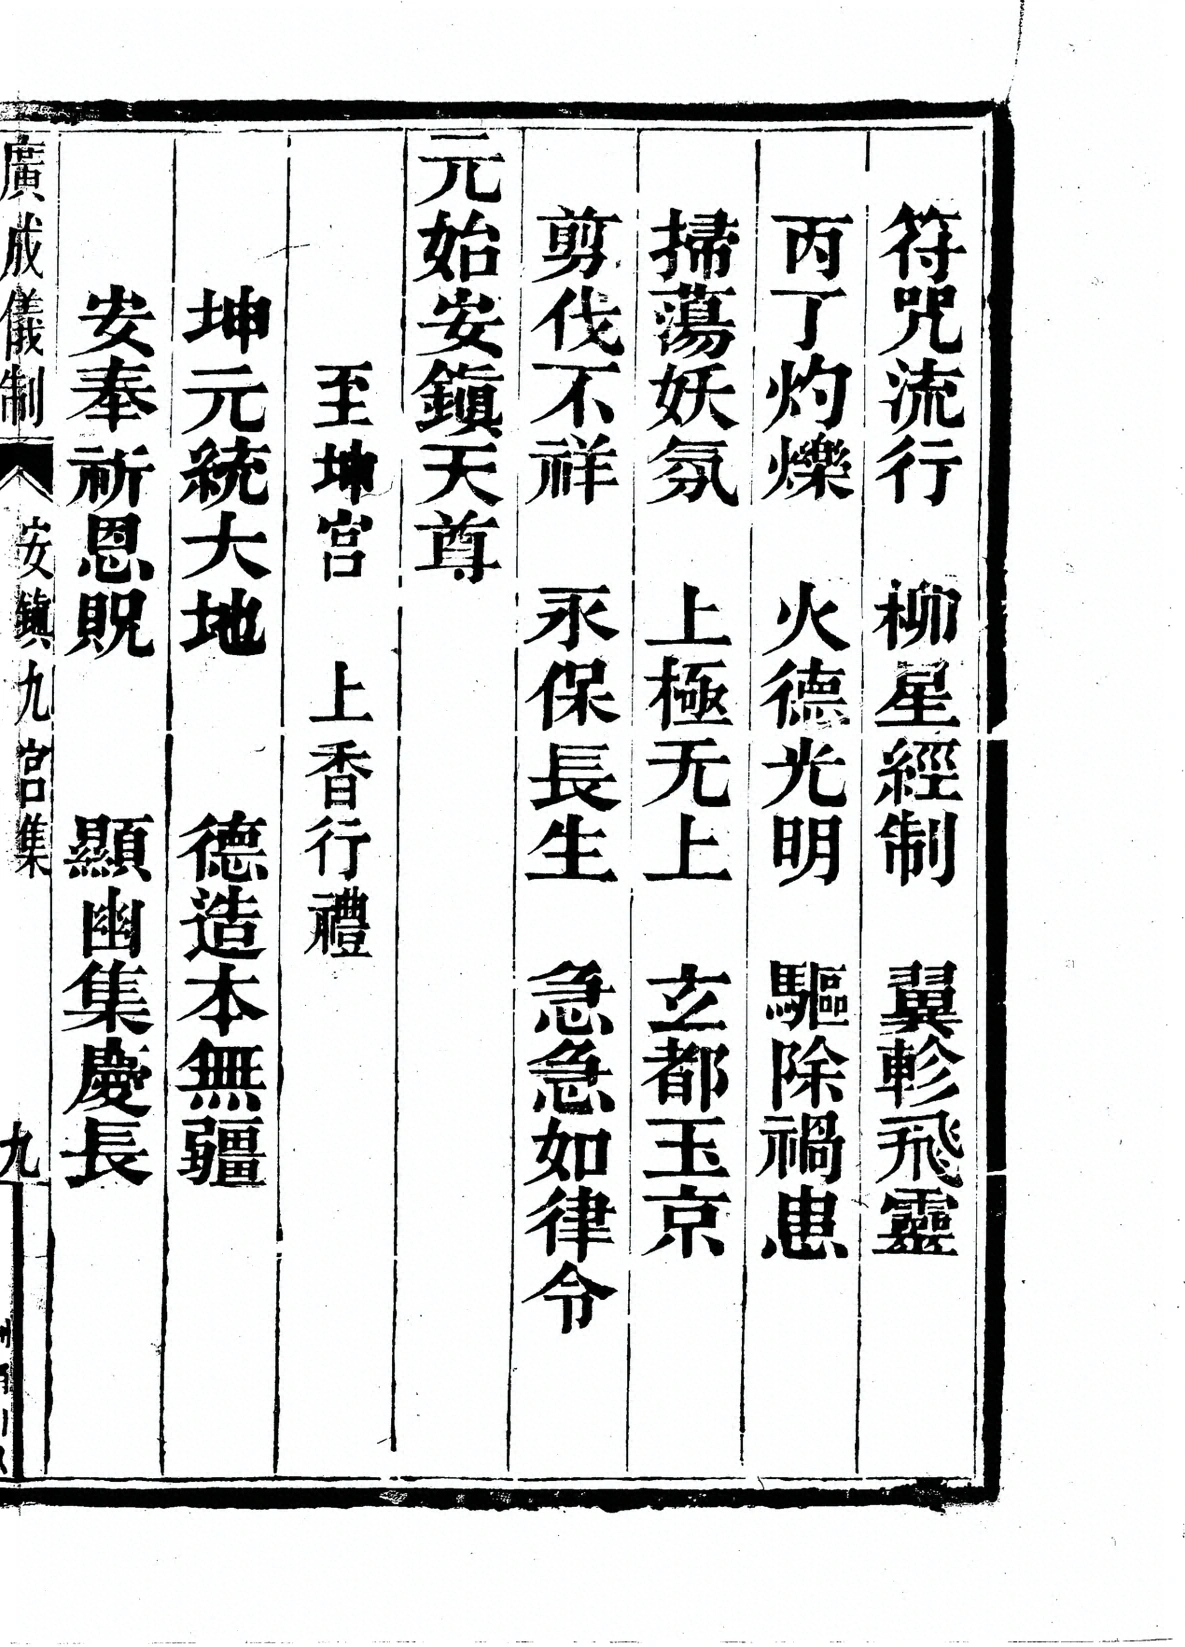 符咒流行　柳星經制　翼軫飛靈
丙丁灼爍　火德光明　驅除禍患
掃蕩妖氛　上極无上　玄都玉京
剪伐不祥　永保長生　急急如律令
元始安鎮天尊
至坤宮　上香行禮
坤元統大地　德造本無疆
安奉祈恩貺　顯幽集慶長
廣成儀制　安鎮九宮集　九